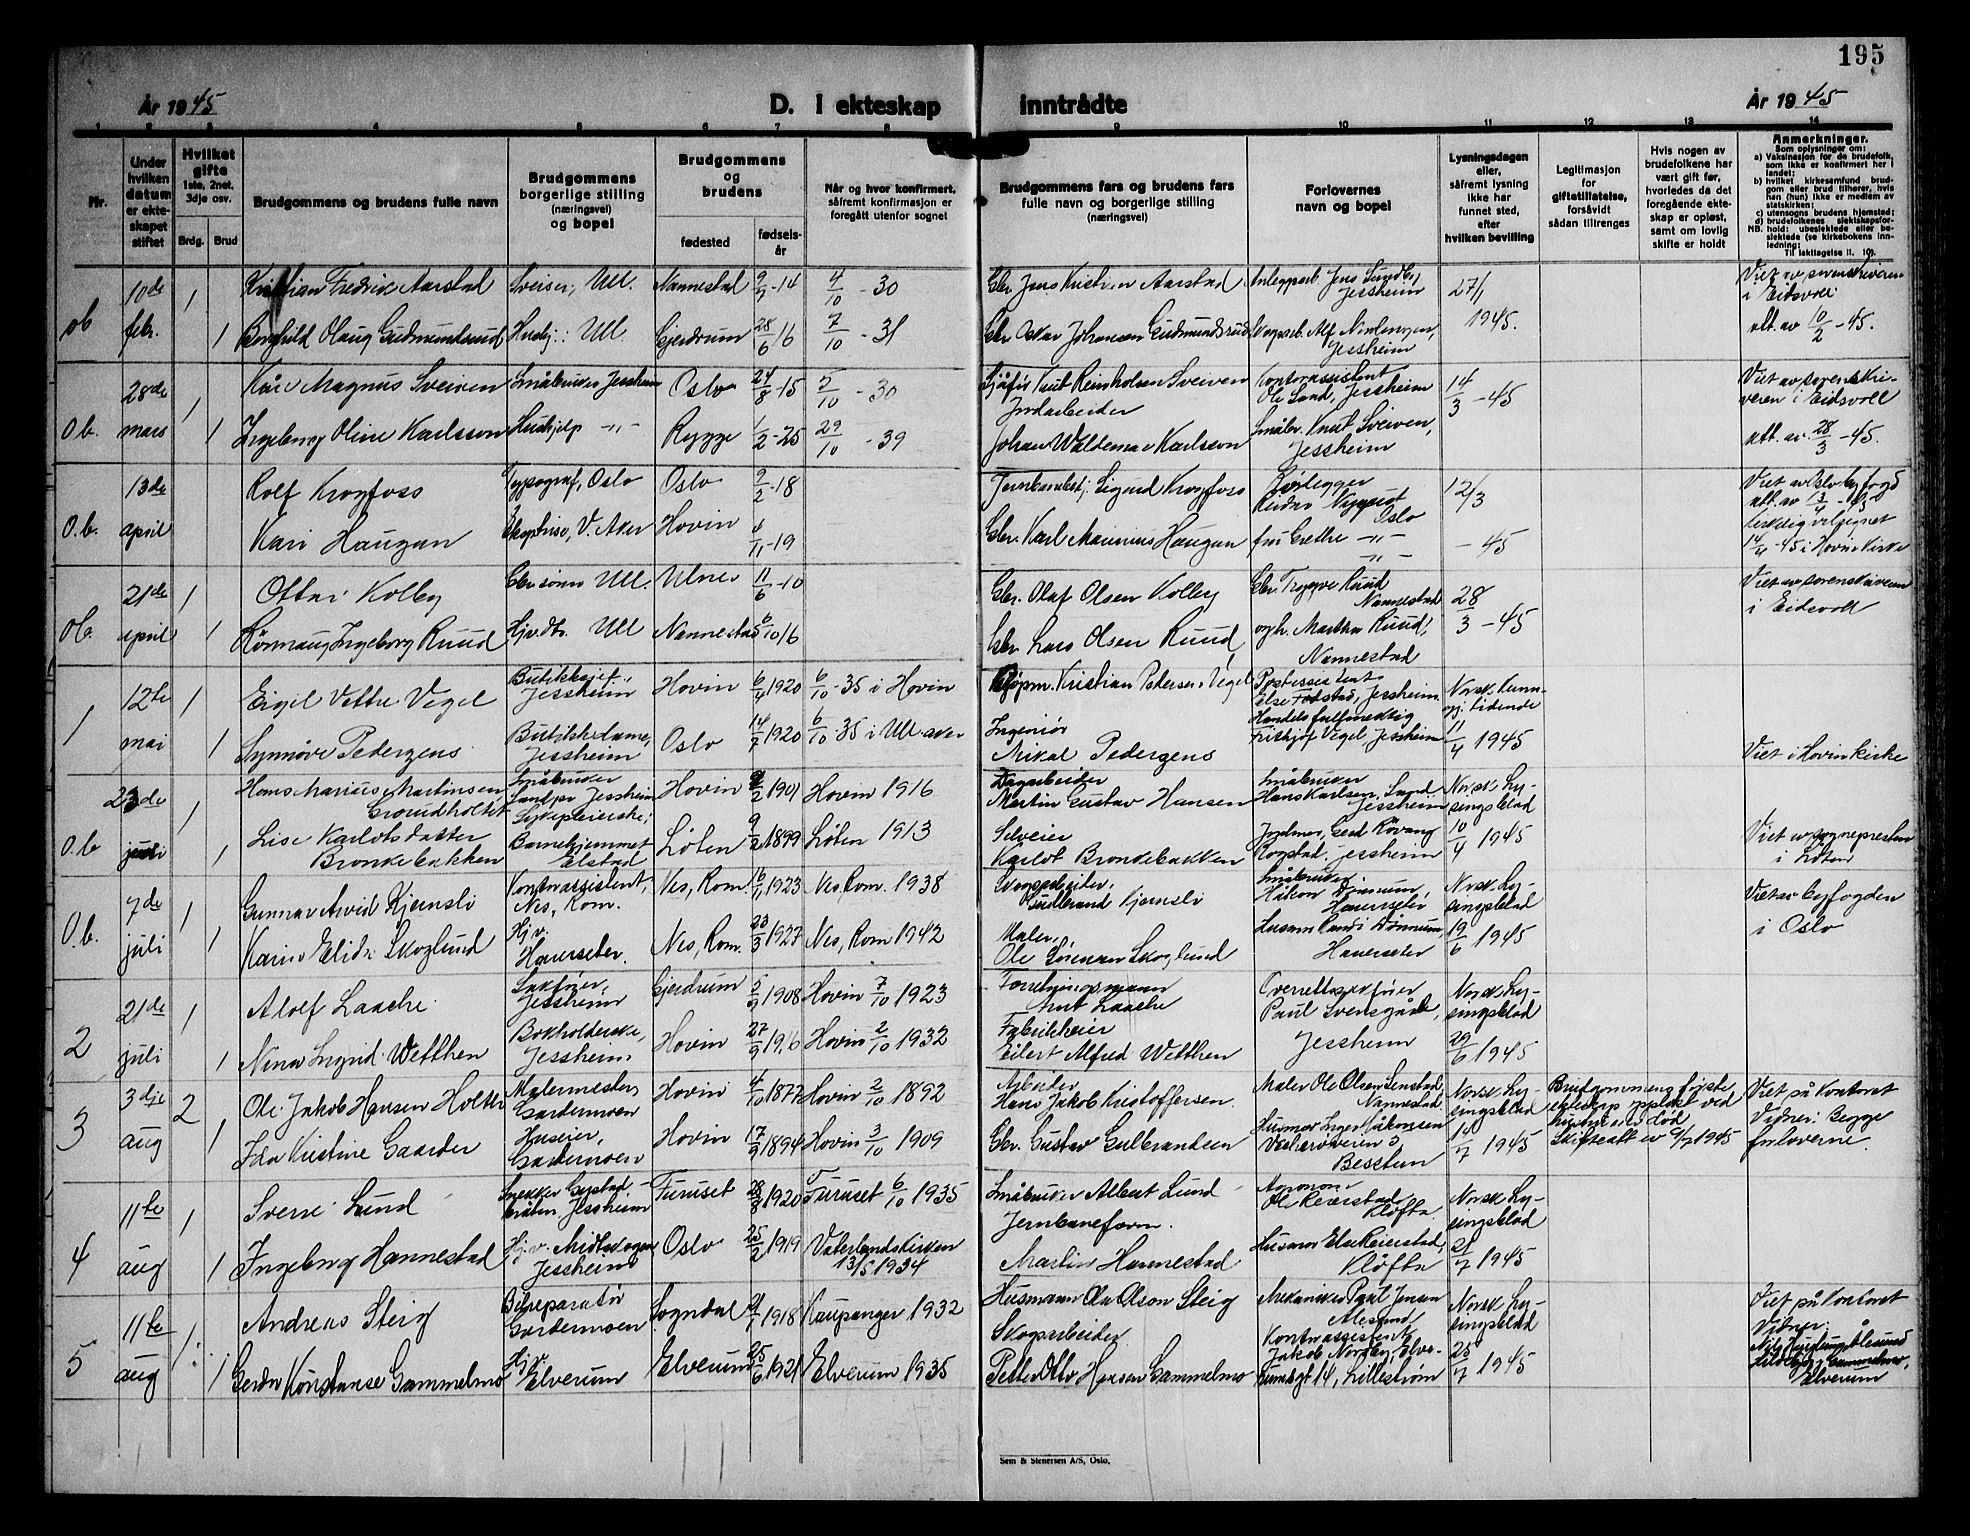 195
År 1945
D. I ekteskap
inntrådte
År 1945
1 2 3 4 5 6 7 8 9 10 11 12 13 14
Nr.
Under
hvilken
datum
er ekte-
skapet
stiftet
Hvilket
gifte
1ste, 2net,
3dje osv.
Brdg. Brud
Brudgommens og brudens fulle navn
Brudgommens
borgerlige stilling
(næringsvei)
og bopel
Brudgommens
og
brudens
fødested
fødsels-
år
Når og hvor konfirmert,
såfremt konfirmasjon er
foregått utenfor sognet
Brudgommens fars og brudens fars
fulle navn og borgerlige stilling
(næringsvei)
Forlovernes
navn og bopel
Lysningsdagen
eller,
såfremt lysning
ikke har
funnet sted,
efter
hvilken bevilling
Legitimasjon
for
giftetillatelse,
forsåvidt
sådan tiltrenges
Hvis nogen av
brudefolkene har
vært gift før,
hvorledes da det
foregående ekte-
skap er opløst,
samt om lovlig
skifte er holdt
Anmerkninger.
Som oplysninger om:
a) Vaksinasjon for de brudefolk,
som ikke er konfirmert her i
landet;
b) hvilket kirkesamfund brud-
gom eller brud tilhører, hvis
han (hun) ikke er medlem av
statskirken;
c) utensogns brudens hjemsted;
d) brudefolkenes slektskapsfor-
hold: ubeslektede eller be-
slektede (se kirkebokens inn-
ledning;
NB.
Til iakttagelse II. 10).
ob 10de febr. 1 Kristian Fredrik Aarstad Sveiser, Ull. Nannestad 9/7-14 4/10 - 30 Gbr. Jens Kristian Aarstad Anleggsarb. Jens Sundby, Jessheim 27/1 1945. Viet av sorenskriveren i Eidsvoll
1 Borghild Olaug Gudmundsrud Hushj.: Ull. Gjerdrum 28/6 16 7/10 - 31 Gbr. Oskar Johansen Gudmundsrud Jessheim att. av 10/2 - 45.
O.b. 28de mars 1 Kåre Magnus Sveiven Småbruker Jessheim Oslo 24/8-15 5/10 - 30 Knut Reinholsen Sveiven Kontorassistent Ole Sand, Jessheim 14/3 - 45 Viet av sorenskriveren i Eidsvoll
1 Ingeborg Oline Karlsson Hushjelp -"- Rygge 1/2-25 29/10 - 39 Jordarbeider Johan Waldemar Karlsson Småbr. Knut Sveiven, Jessheim att. av. 28/3 - 45.
O.b. 13de april Rolf Krogfoss Typograf, Oslo Oslo 9/2-18 Sigurd Krogfoss Rørlegger Oslo 12/3 Viet av Oslo byfogd
Kari Haugan V. Aker Hovin 4/11-19 Gbr. Karl Maurius Haugan fru Grethe -"- -"- - 45 14/4 - 45 i Hovin Kirke
Ob. 21de april 1 Ottar Kolby Gbr.sønn Ull. Ulnes 11/6-10 Gbr. Olaf Olsen Kolby Gbr. Trygve Ruud Nannestad 28/3 - 45 Viet av sorenskriveren i Eidsvoll
1 Rønnaug Ingeborg Ruud Hjv.dtr. Ull Nannestad 6/10 16 Gbr Lars Olsen Ruud Marthe Ruud, Nannestad
1 12te mai 1 Eigil Vettre Vegel Butikkbetj., Jessheim Hovin 6/4 1920 6/10 - 35 i Hovin Kjøpm. Kristian Pedersen Vegel Postassistent Else Fodstad, Jessheim Norsk Kunngj. tidende
1 Synnøve Pedergens Butikkdame, Jessheim Oslo 14/7 1920 6/10 - 35 i Ull-aker Ingeniør Mikal Pedergens Handelsfullmektig Frithjof Vegel, Jessheim 11/4 1945 Viet i Hovin kirke
O.b 23de juli 1 Hans Marius Martinsen Småbruker Jessheim Hovin 9/2 1901 Hovin 1916 Martin Gustav Hansen Småbruker Hans Karlsen, Sand Jessheim Norsk Lysingsblad
1 Lise Karlotsdatter Brondebakken Sykepleierske, Barnehjemmet Elstad Løten 9/2 1899 Løten 1913 Selveier Karlot Brondebakken Jessheim 10/4 1945 Viet av sognepresten i Løten
O.b. 7de juli 1 Gunnar Arvid Kjernsli Kontorassistent, Nes, Rom. Nes, Rom. 16/1 1923 Nes, Rom. 1938 Skogsarbeider, Gulbrand Kjernsli Småbruker Håkon Dønnum, Hauerseter Norsk Lysingsblad Viet av byfogden i Oslo
1 Karin Elida Skoglund Hjv. Hauerseter. Nes, Rom. 23/3 1927 Nes, Rom 1942 Maler, Ole Sørensen Skoglund Husmor Randi Dønnum, Hauerseter 19/6 1945
2 21de juli 1 Alolf Laache Sakfører, Jessheim Gjerdrum 5/9 1908 Hovin 7/10 1923 Forretningsmann Arnt Laache Overrettssakfører Paul Svensgård, Norsk Lysingsblad
1 Nina Ingrid Wetthen Bokholderske, Jessheim Hovin 27/9 1916 Hovin 2/10 1932 Fabrikkeier Eilert Alfred Wetthen Jessheim 29/6 1945
3 3dje aug 2 Ole Jakob Hansen Holter Malermester, Gardermoen Hovin 4/10 1877 Hovin 2/10 1892 Arbeider Hans Jakob Kristoffersen Maler Ole Olsen Nannestad Norsk Lysingsblad Brudgommens første ekteskap oppløst ved hustruens død Skifteatt av 6/7 1945 Viet på kontoret Vidner: Begge forloverne.
1 Ida Kristine Gaarder Huseier, Gardermoen Hovin 17/9 1894 Hovin 3/10 1909 Gbr. Gustav Gulbrandsen Husmor Inger Håkonsen Bestum 14/7 1945
4 11te aug 1 Sverre Lund Jessheim Furuset 28/8 1920 Furuset 6/10 1935 Småbruker Albert Lund Agronom Ole Reierstad Kløfta. Norsk Lysingsblad
1 Ingeborg Hannestad Hjv. Midtskogen Jessheim Oslo 25/2 1919 Vaterlandskirken 13/5 1934 Jernbaneform. Martin Hannestad Husmor Else Reierstad, Kløfta 21/7 1945
5 11te aug 1 Andreas Steig Bilreparatør Gardermoen Sogndal 21/1 1918 Kaupanger 1932 Husmann Ola Olson Steig Mekaniker Paul Jensen Ålesund Norsk Lysingsblad Viet på kontoret Vidner:
1 Gerda Konstanse Gammelmo Hjv. Elverum Elverum 25/6 1921 Elverum 1935 Skogsarbeider Petter Otto Hansen Gammelmo Kontorassistent Jakob Nordby, Elverumsgt 14, Lillestrøm 25/7 1945 Gammelmo, Elverum
Sem & Stenersen A/S, Oslo.